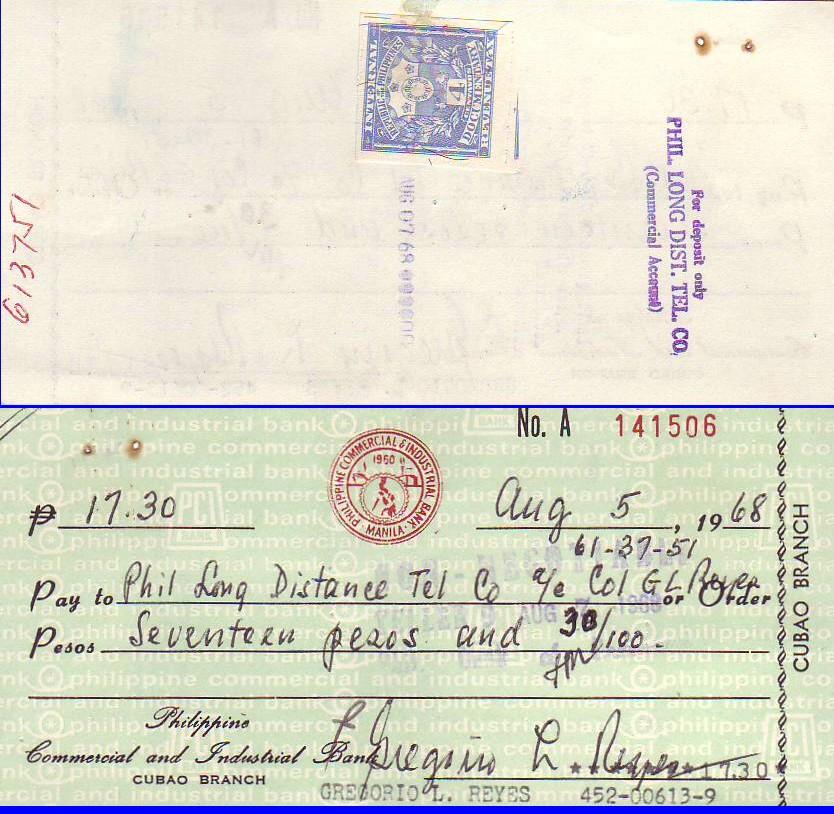 613751
INTERNAL REVENUE
REPUBLIC OF THE PHILIPPINES
DOCUMENTARY
4
AUG 07 68
For deposit only
PHIL. LONG DIST. TEL. CO.
(Commercial Account)
No. A 141506
PHILIPPINE COMMERCIAL & INDUSTRIAL BANK
1960
MANILA
PCI BANK
₱ 17.30
Aug 5, 1968
61-37-51
Pay to Phil Long Distance Tel Co a/c Col G L Reyes or Order
AUG
Pesos Seventeen pesos and 30/100.
CUBAO BRANCH
Philippine
Commercial and Industrial Bank
CUBAO BRANCH
Gregorio L. Reyes
17.30
GREGORIO L. REYES 452-00613-9